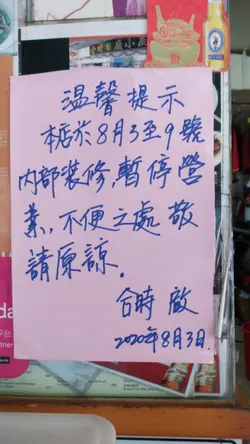 溫馨提示
本店於8月3至9號
內部裝修,暫停營
業,不便之處敬
請原諒。
合時 啟
2020年8月3日